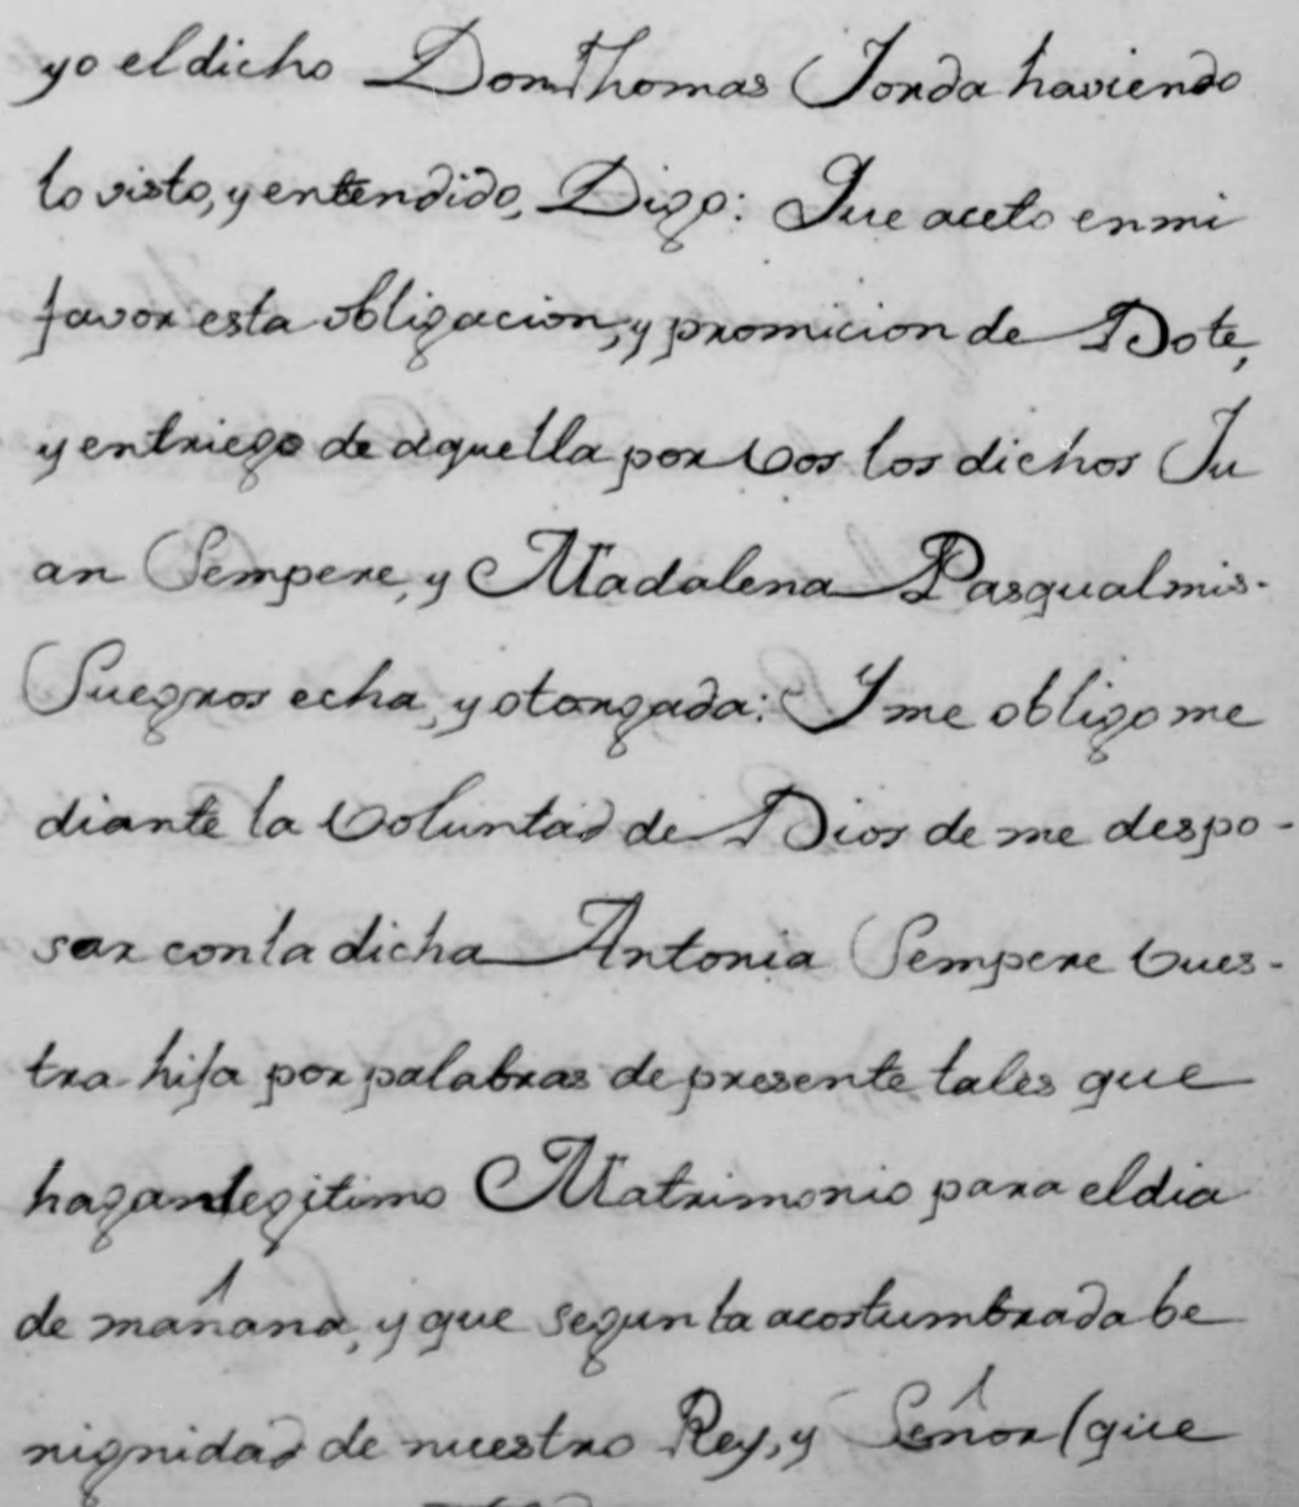 yo el dicho Don Thomas Jorda haviendo
lo visto, y entendido, Digo: Que aceto en mi
favor esta obligacion, y promicion de Dote,
y entriego de aquella por Vos los dichos Ju
an Sempere, y Madalena Pasqual mis-
Suegros echa, y otorgada: Y me obligo me
diante la Voluntad de Dios de me despo-
sar con la dicha Antonia Sempere Vues-
tra hija por palabras de presente tales que
hagan legitimo Matrimonio para el dia
de mañana, y que segun la acostumbrada be
nignidad de nuestro Rey, y Señor (que